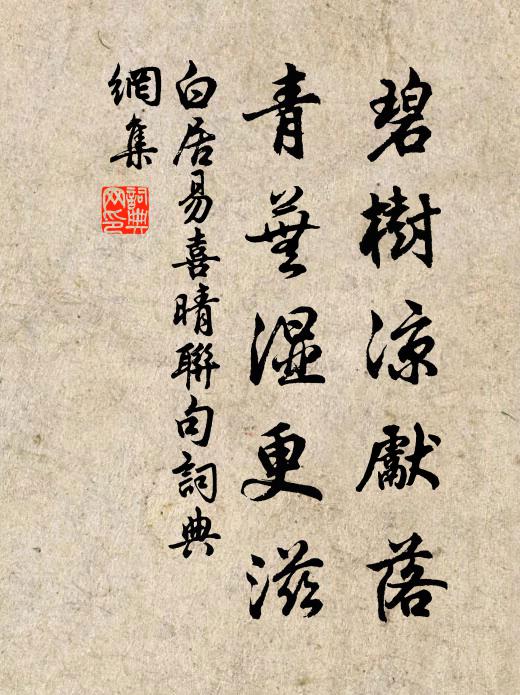 碧樹涼獻落
青蕪濕更滋
白居易喜晴聯句詞典
網集
詞典網印